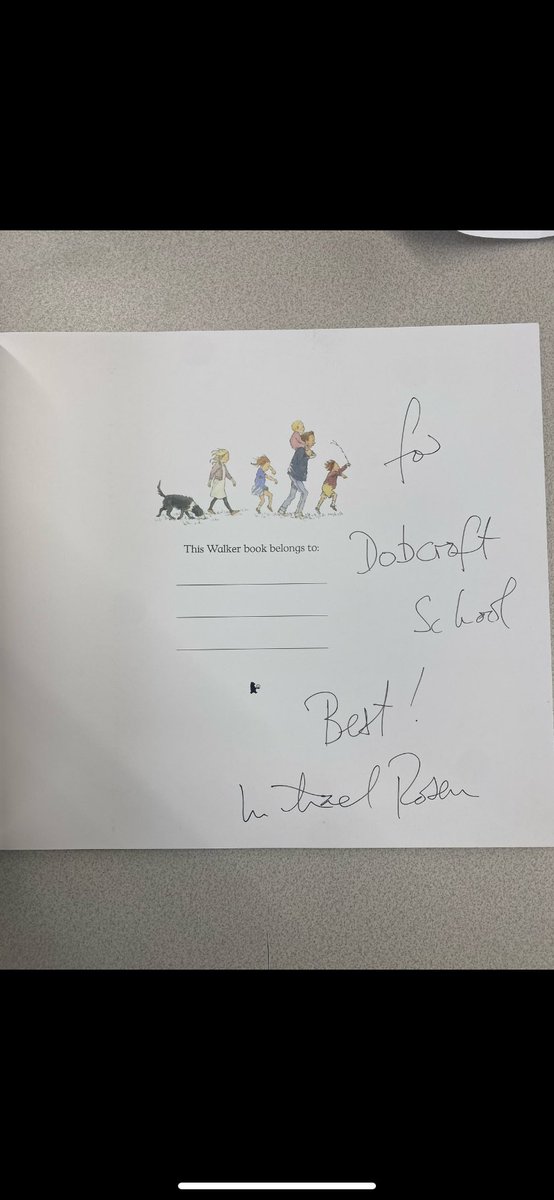 for
Dobcroft
School
This Walker book belongs to:
Best!
Michael Rosen